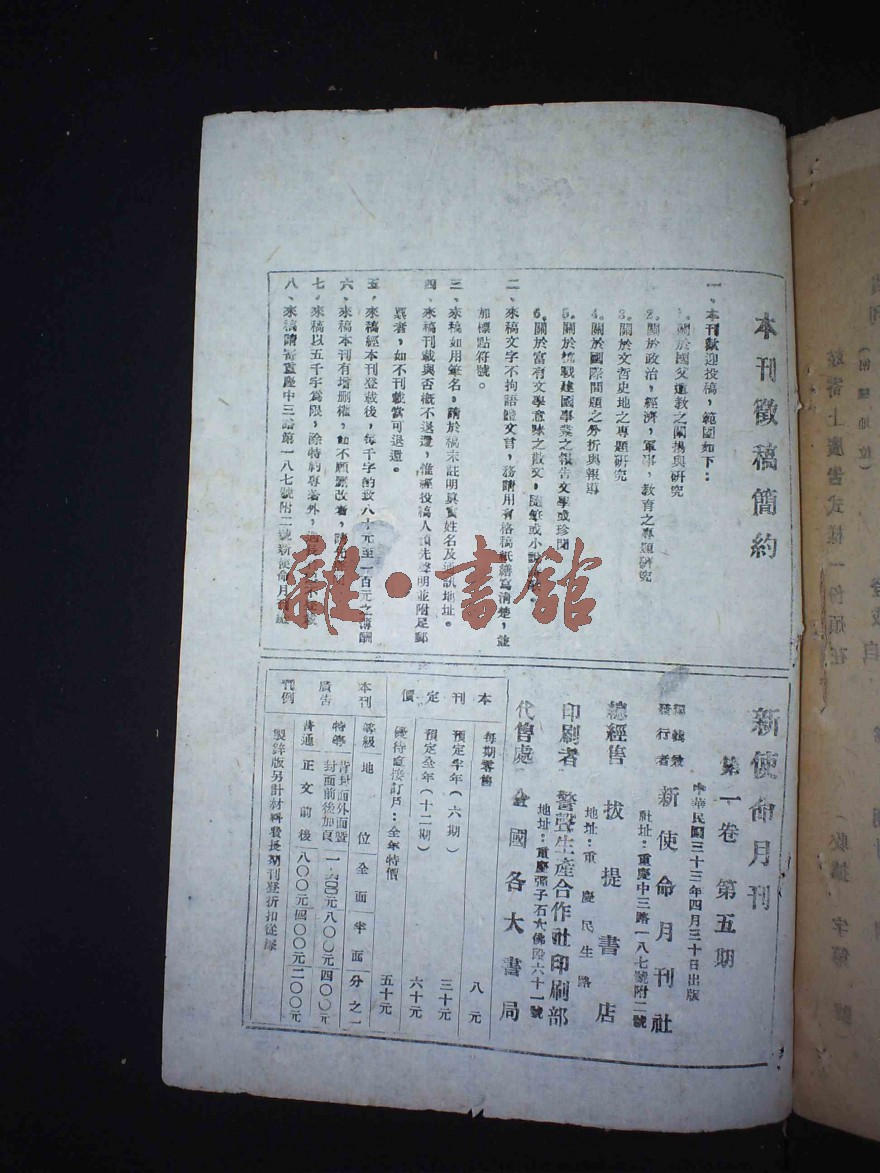 本刊徵稿簡約
一、本刊歡迎投稿，範圍如下：
1.關於國父遺教之闡揚與研究
2.關於政治，經濟，軍事，教育之專題研究
3.關於文哲史地之專題研究
4.關於國際問題之分析與報導
5.關於抗戰建國事業之報告文學或珍聞
6.關於富有文學意味之散文，隨筆或小說
二、來稿文字不拘語體文言，務請用有格稿紙繕寫清楚，並
加標點符號。
三、來稿如用筆名，請於稿末註明真實姓名及通訊地址。
四、來稿刊載與否概不退還，惟經投稿人預先聲明並附足郵
票者，如不刊載當可退還。
五、來稿經本刊登載後，每千字酌致八十元至一百元之薄酬
六、來稿本刊有增删權，如不願删改者，請先
七、來稿以五千字爲限，除特約專著外，過長
八、來稿請寄重慶中三路第一八七號附二號新使命月刊
雜·書館
新使命月刊
第一卷 第五期
中華民國三十三年四月三十日出版
編輯兼
發行者 新使命月刊社
社址：重慶中三路一八七號附二號
總經售 拔提書店
地址：重慶民生路
印刷者 警聲生產合作社印刷部
地址：重慶彈子石大佛段六十一號
代售處 全國各大書局
本刊定價
每期零售 八元
預定半年（六期） 三十元
預定全年（十二期） 六十元
優待直接訂戶：全年特價 五十元
本刊廣告刊例
等級 地位 全面 半面 分之一
特等 背封面外面暨封面前後加頁 一·六〇〇元 八〇〇元 四〇〇元
普通 正文前後 八〇〇元 四〇〇元 二〇〇元
製鋅版另計材料費長期刊登折扣從緣
茲寄上廣告式樣一份煩在